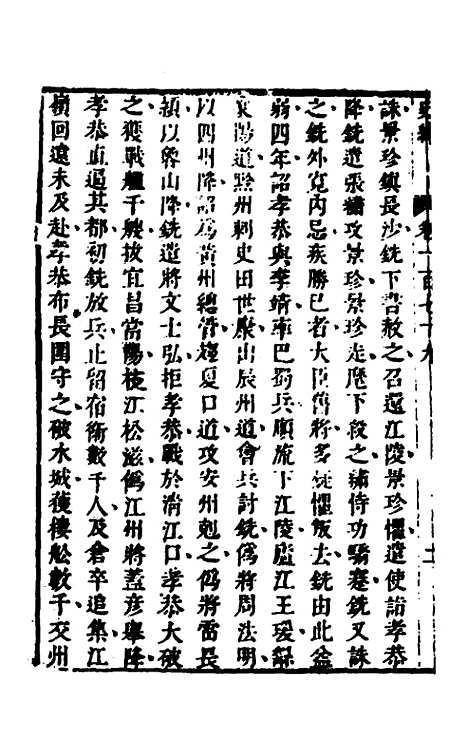 史纂　卷一百七十九
誅景珍鎮長沙銑下書赦之召還江陵景珍懼遣使詣孝恭
降銑遣張繡攻景珍景珍走麾下殺之繡侍功驕蹇銑又誅
之銑外寬內忌疾勝已者大臣舊將多疑懼叛去銑由此益
弱四年詔孝恭與李靖率巴蜀兵順流下江陵廬江王瑗繇
襄陽道黔州刺史田世康出辰州道會兵討銑僞將周法明
以四州降詔爲黃州總管趨夏口道攻安州剋之僞將雷長
潁以魯山降銑遣將文士弘拒孝恭戰於淸江口孝恭大破
之獲戰艫千艘拔宜昌當陽枝江松滋僞江州將蓋彦舉降
孝恭直逼其都初銑放兵止留宿衞數千人及倉卒追集江
嶺回遠未及赴孝恭布長圍守之破水城獲樓船數千交州